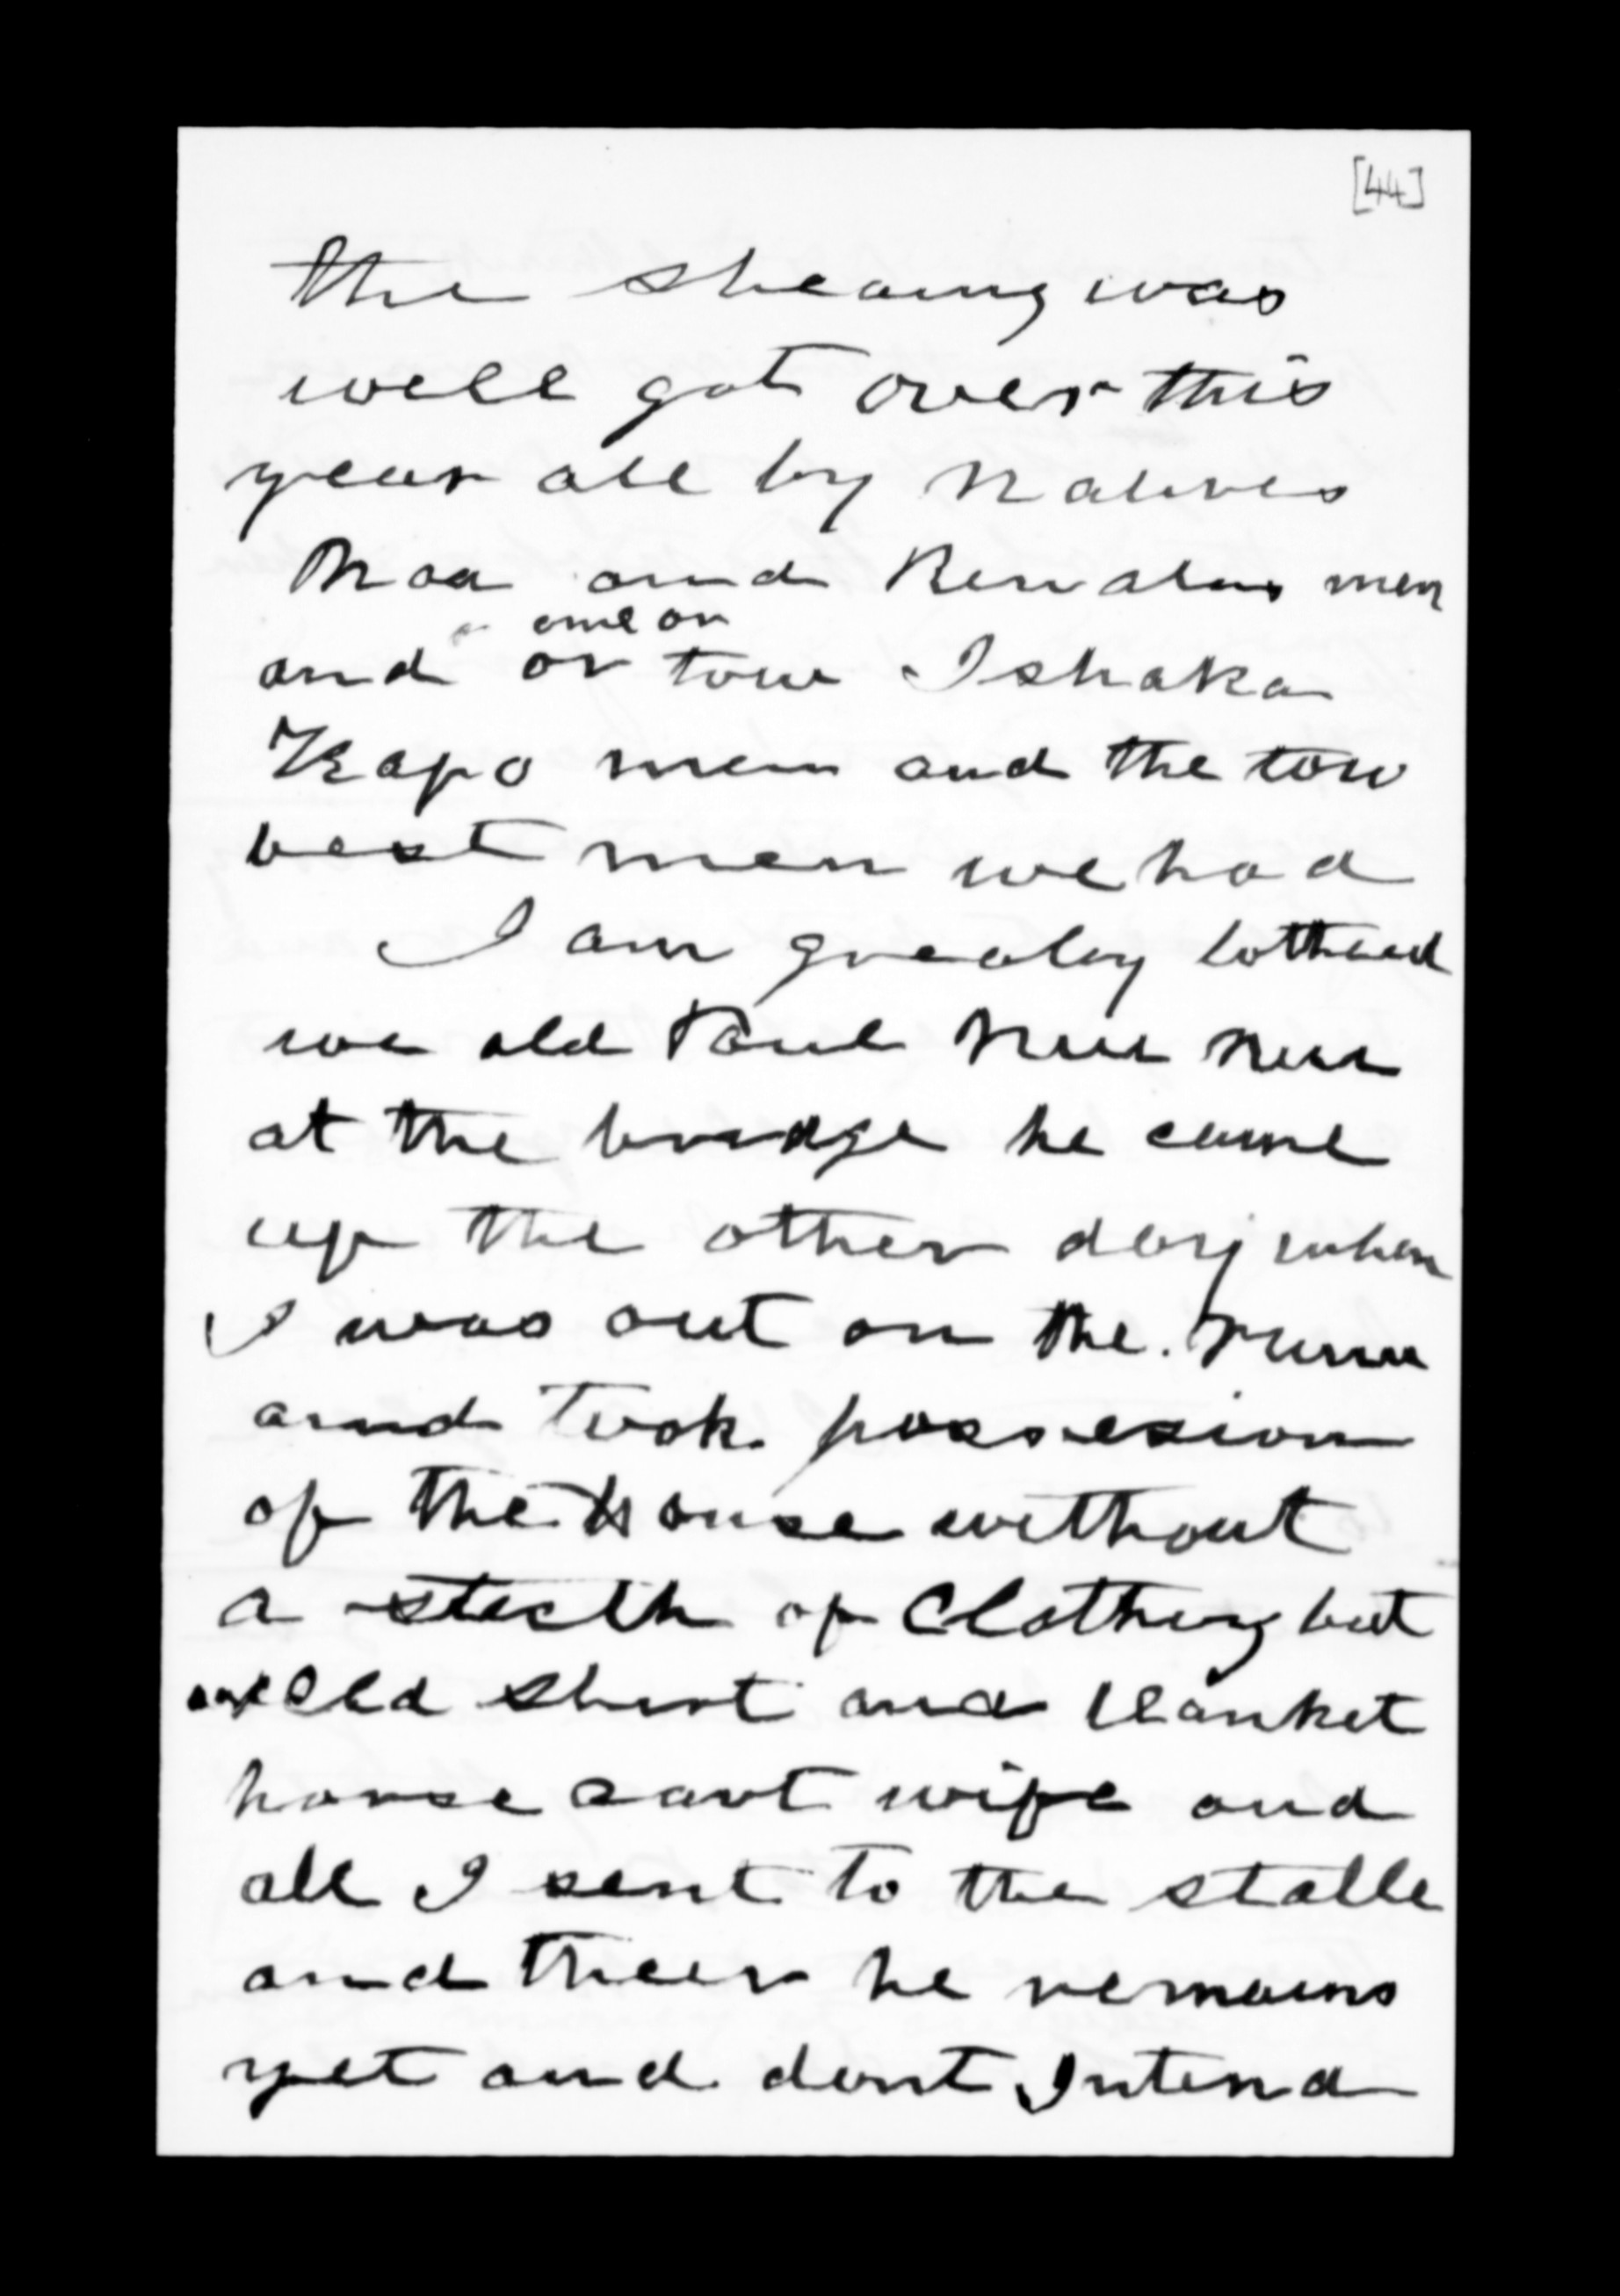 [44]
The sheaing was
well got over this
year all by Natives
Moa and Renatas men
one or
and or tow Ishaka
Kapo men and the tow
best men we had
I am greatly bothued
we old Paul Nui Nui
at the bridge he came
up the other day when
I was out on the. runn
and took possesion
of the House without
a stecth of Clothing but
old Shirt and blanket
horse cart wife and
all I sent to the stable
and theer he remains
yet and dont Intend